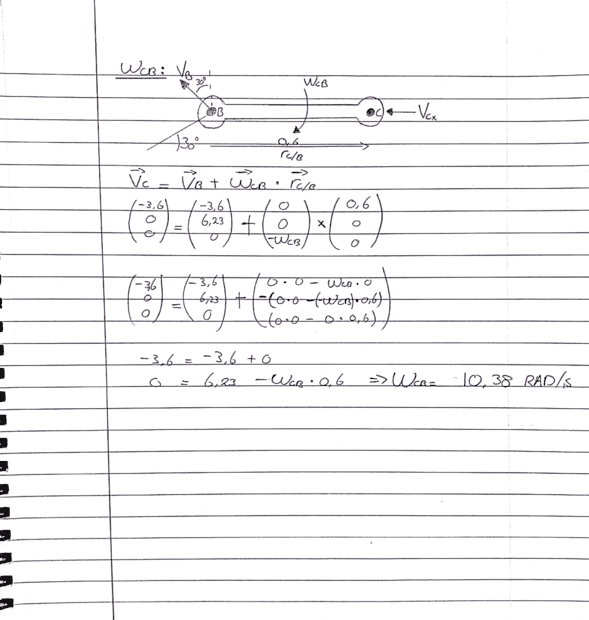 WCB: VB 30°
WCB
B C ← VCx
30° 0,6
rC/B
VC = VB + WCB · rC/B
(-3,6 0 0) = (-3,6 6,23 0) + (0 0 -WCB) × (0,6 0 0)
(-36 0 0) = (-3,6 6,23 0) + (0·0 - WCB·0 -(0·0 -(-WCB)·0,6) (0·0 - 0·0,6))
-3,6 = -3,6 + 0
0 = 6,23 - WCB · 0,6 => WCB = 10,38 RAD/s